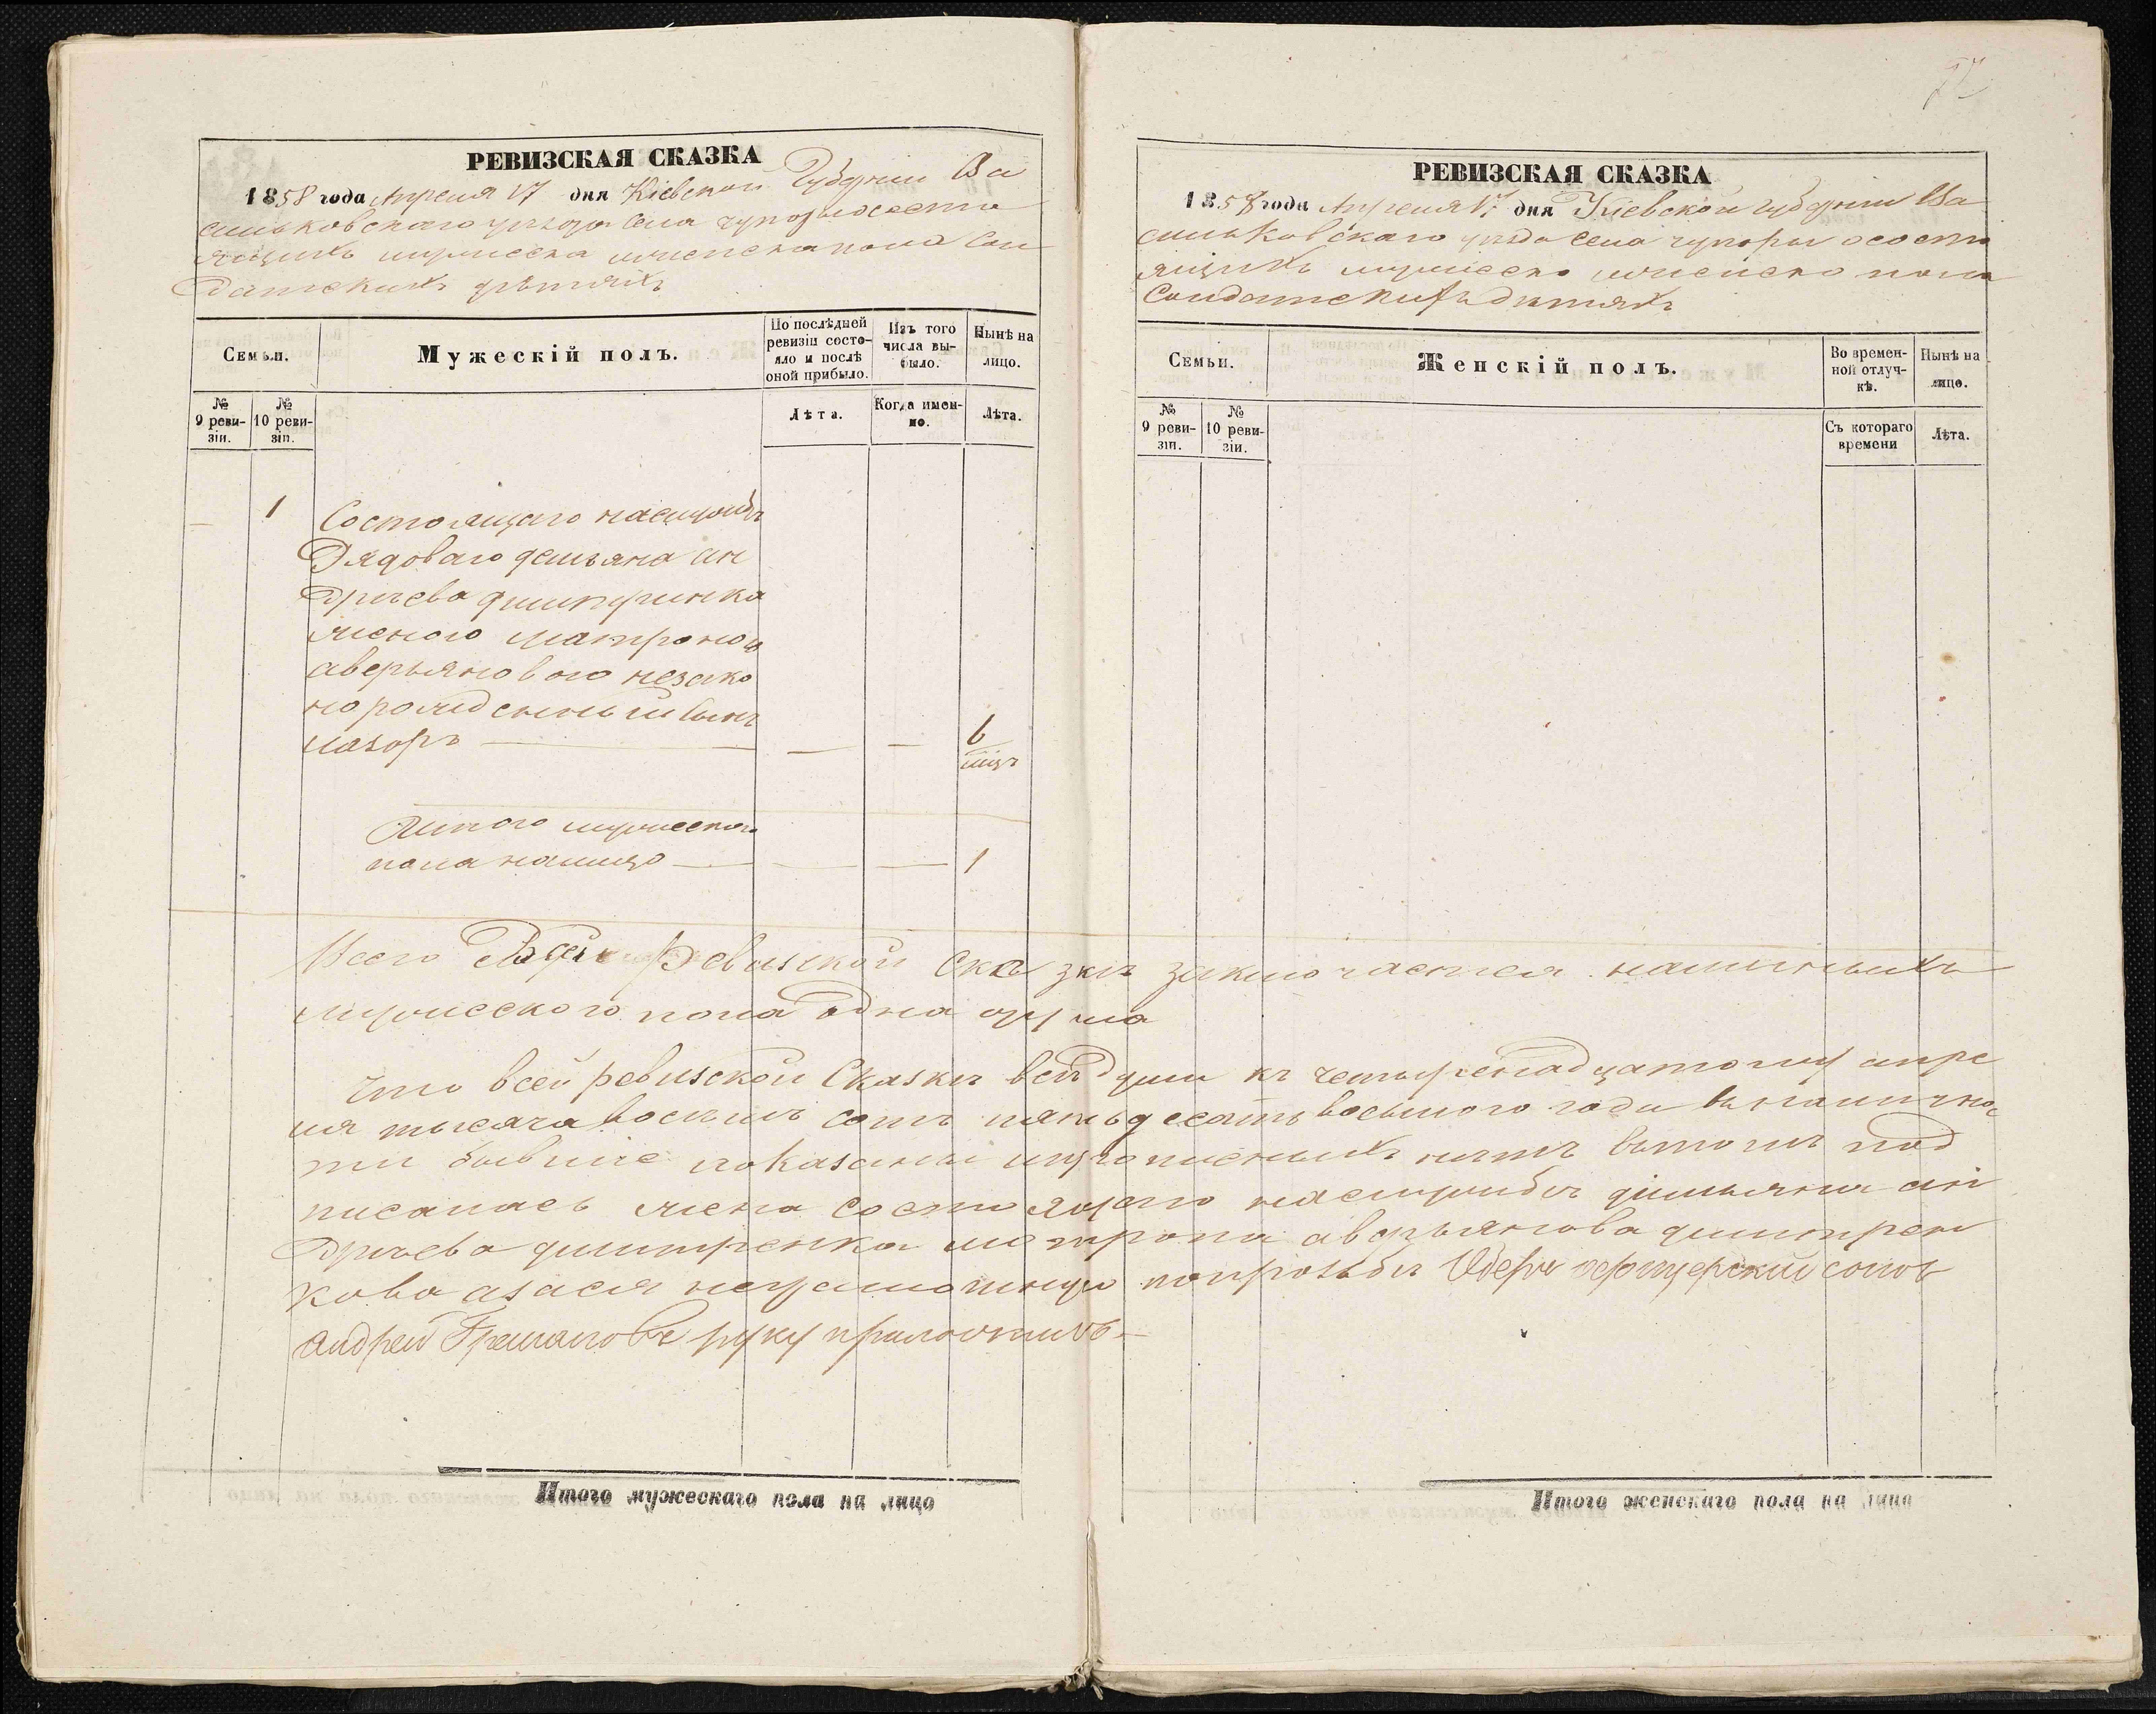 РЕВИЗСКАЯ СКАЗКА
1858 года Апреля 17 дня Кіевской Губернии Ва
сильковскаго уезда села чупоры ососто
ящихъ мужеска женска пола Сол
датскихъ дѣтяхъ
Семьи.
Мужескій полъ.
По послѣдней ревизіи состояло и послѣ оной прибыло.
Изъ того числа выбыло.
Нынѣ на лицо.
№ 9 ревизіи.
№ 10 ревизіи.
Лѣта.
Когда именно.
Лѣта.
— 1 Состоящаго наслужбѣ
Рядоваго демьяна ан
дреева дмитренка
женаго матроны
аверьяновой незако
норожденный сынъ
лазоръ — — — 6
мцъ
Итого мужеска
пола налицо — — — 1
Всего Всей Ревизской Сказкѣ заключается наличныхъ
мужеского пола одна душа
Что всей ревизской Сказкѣ всѣ души къ четыренадцатому апре
ля тысяча восемь сотъ пятьдесятъ восьмого года вналично
ти бывшіе показаны ипрописныхъ нѣтъ втомъ под
писалась жена состоящаго наслужбѣ димьяна ан
дреева дмитренка матрона аверьянова дмитрен
кова азасея неграмотную попрозьбѣ Оберъ офицерский сынъ
Андрей руку приложилъ
Итого мужескаго пола на лицо
РЕВИЗСКАЯ СКАЗКА
1858 года Апреля 17 дня Кіевской губернии Ва
сильковскаго уезда села чупоры ососто
ящихъ мужеска женска пола
Солдатскихъ дѣтяхъ
Семьи.
Женскій полъ.
Во временной отлучкѣ.
Нынѣ на лицо.
№ 9 ревизіи.
№ 10 ревизіи.
Съ котораго времени
Лѣта.
Итого женскаго пола на лицо